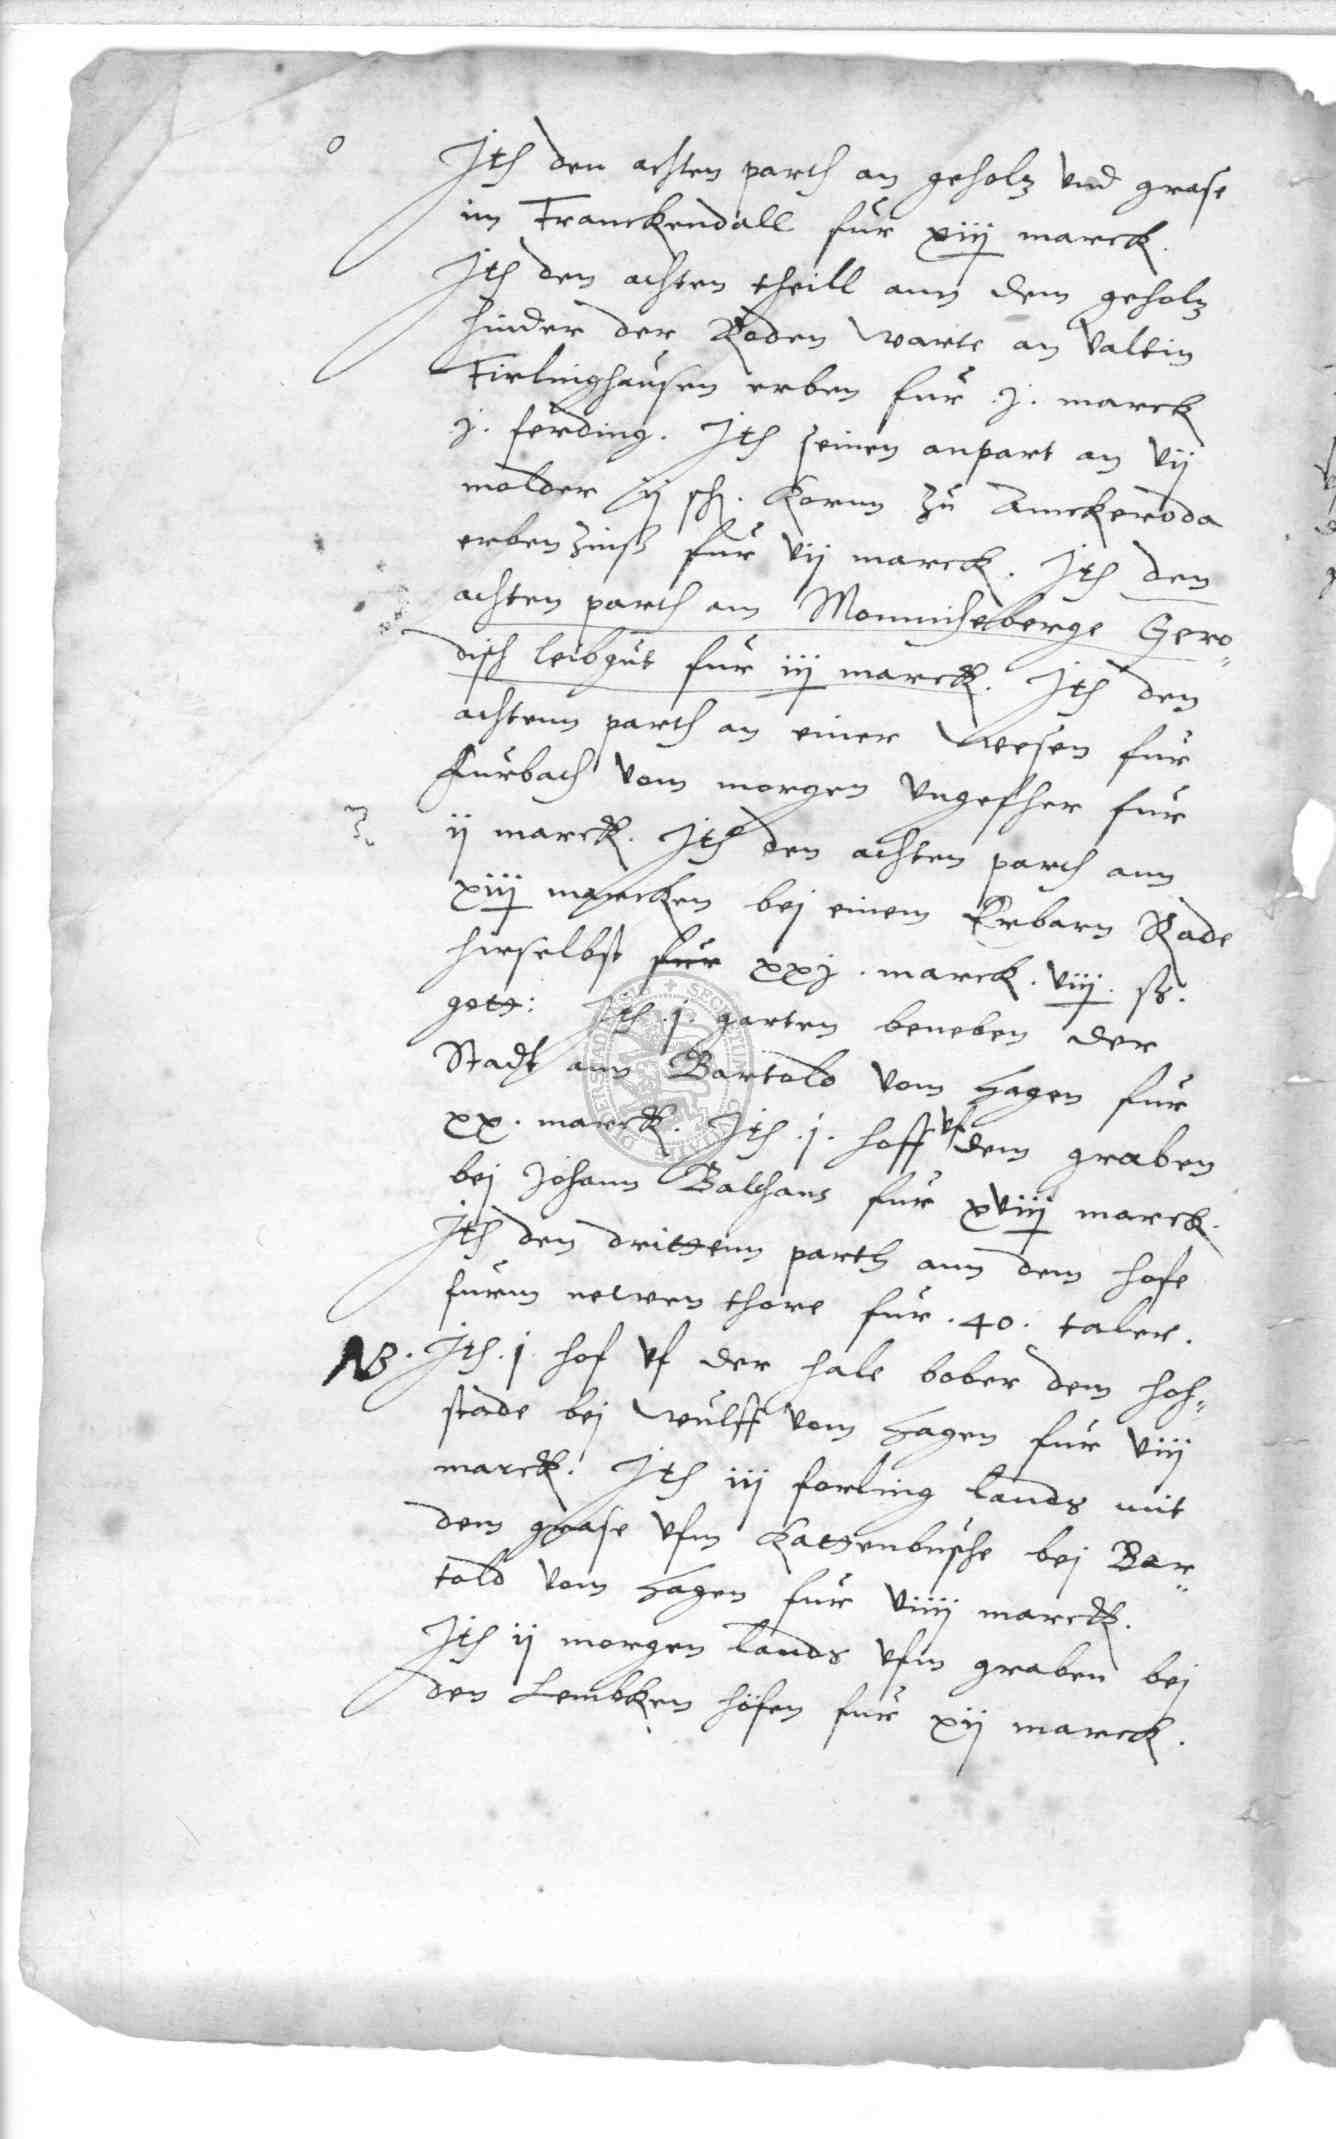 Jth den achten parth an geholz vnd grase
im Franckendall fur xiij marck.
Jth den achten theill ann dem geholz
hinder der Roden warte an Valtin
Firlinghausen erben fur .j. marck
j. ferding. Jth seinen anpart an vij
molder ij sch. Kornn zu Amckeroda
erbenzinß fur vij marck. Jth den
achten parth am Monnicheberge Gero„
disch leibgut fur iij marck. Jth den
achtenn parth an einer Weesen fur
Furbach vom morgen vngefher fur
ij marck. Jth den achten parth ann
xiij marcken bej einem Erbarn Rade
hirselbst fur xxj . marck . viij . ß.
gott: Jth .j. garten beneben der
Stadt ann Bartold vom Hagen fur
xx . marck. Jth .j. hoff vf dem graben
bej Johann Balthans fur xviij marck.
Jth den drittenn parth ann dem hofe
furm newen thore fur . 40 . taler.
NB. Jth .j hof vf der hale bober dem hoh„
stade bej Wulff vom Hagen fur viij
marck. Jth iij forling lands mit
dem grase vfm Katzenbusche bej Bar„
told vom Hagen fur viiij marck.
Jth ij morgen lands vfm graben bej
den Lembken höfen fur xij marck.